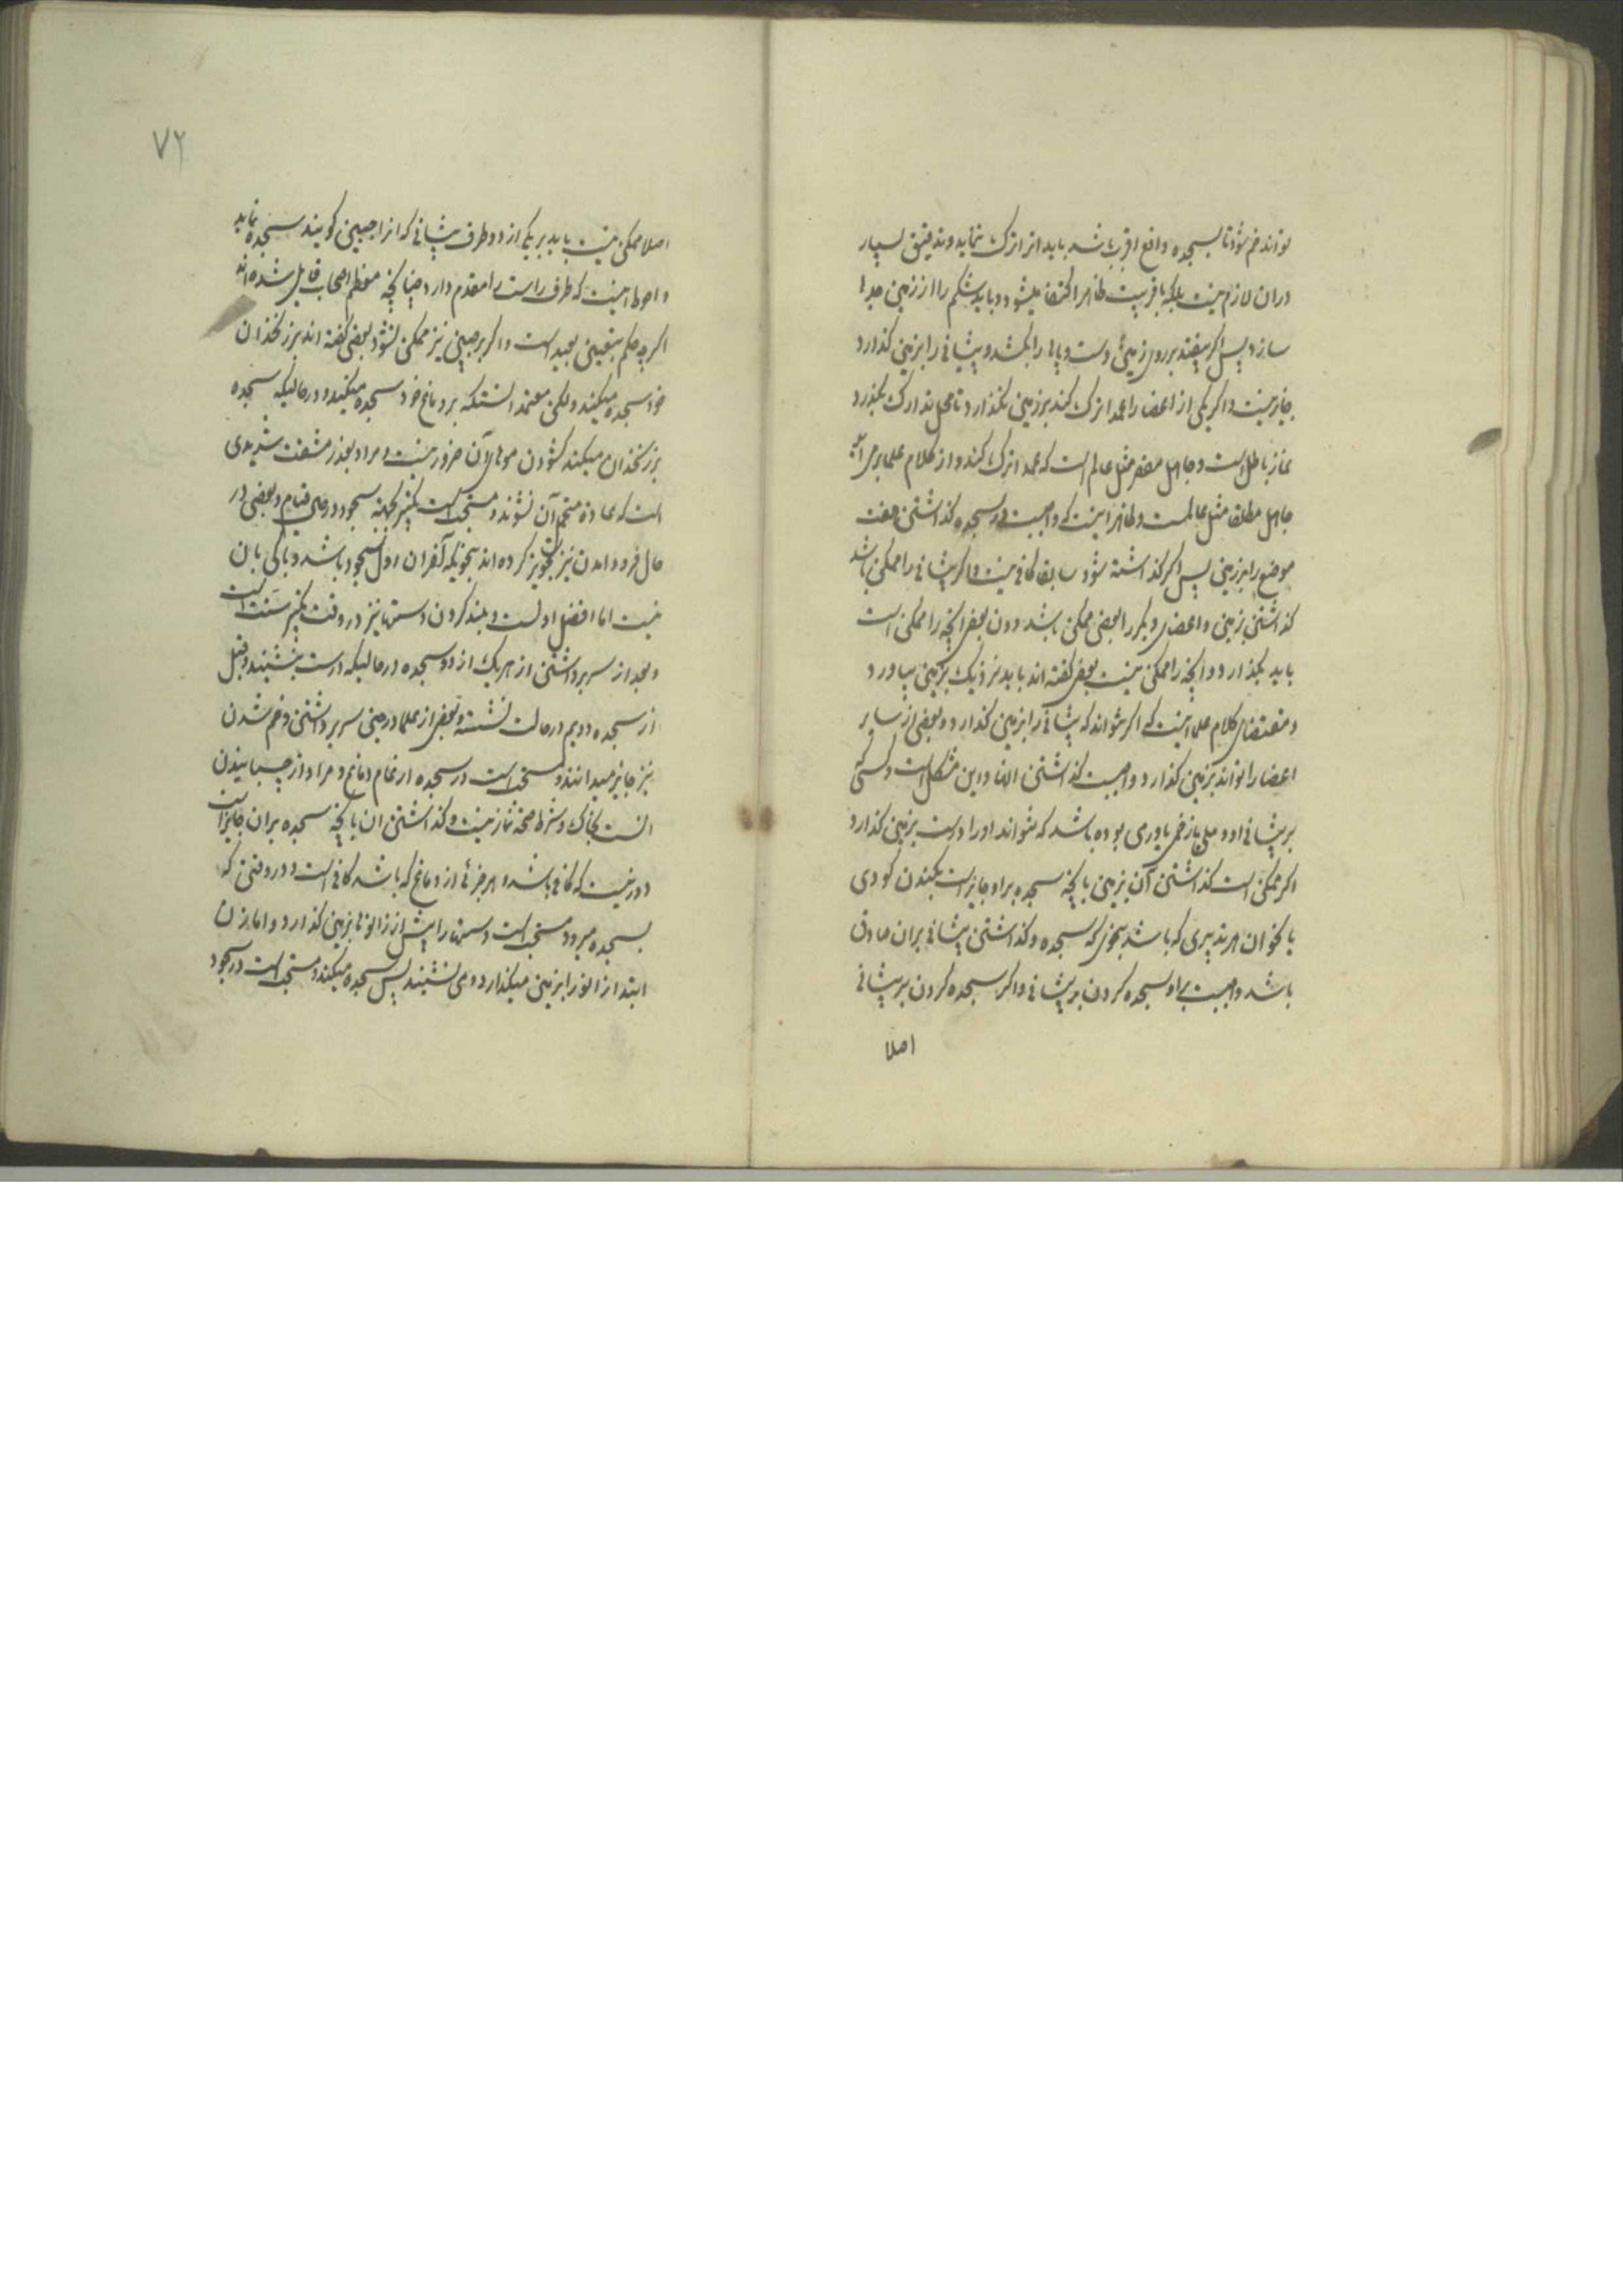 تواند خم شود تا بسجده واقع اقرب باشد باید انرا ترک ننماید و تدقیق بسیار
دران لازم نیست بلکه باقربیت ظاهرا اکتفا میشود و باید شکم را از زمین جدا
سازد پس اگر بیفتد برروی زمین و دست و پاها را بکشد و پیشانی را بزمین گذارد
جایز نیست و اگر یکی از اعضا را عمدا ترک کند برزمین نگذارد تا محل تدارک بگذرد
نماز باطل است و جاهل مقصر مثل عالم است که عمدا ترک کند و از کلام علما برمی آید
جاهل مطلقا مثل عالمست و ظاهر اینست که واجبست در سجده گذاشتن هفت
موضع را برزمین پس اگر گذاشته شود سابقا کافی نیست و اگر پیشانی را ممکن باشد
گذاشتن بزمین و اعضای دیگر را بعضی ممکن باشد دون بعض انچه را ممکن است
باید بگذارد و انچه را ممکن نیست بعض گفته اند باید نزدیک بزمین بیاورد
و مقتضای کلام علما اینست که اگر نتواند که پیشانی را بزمین گذارد و بعضی از سایر
اعضا را تواند بزمین گذارد واجبست گذاشتن انها و این مشکل است و کسی که
بر پیشانی او دملی یا زخم یا ورمی بوده باشد که نتواند او را درست بزمین گذارد
اگر ممکن است گذاشتن آن بزمین یا بانچه سجده براو جایز است بکندن گودی
یا بخوان هر تدبیری که باشد بنحوی که سجده و گذاشتن پیشانی بران صادق
باشد واجبست براو سجده کردن بر پیشانی و اگر سجده کردن بر پیشانی
اصلا
۷۲
اصلا ممکن نیست باید بر یکی از دو طرف پیشانی که انرا جبین گویند سجده نماید
و احوط اینست که طرف راست را مقدم دارد چنانچه معظم اصحاب قایل شده اند
اگرچه حکم بتعیین بعید است و اگر بر جبین نیز ممکن نشود بعضی گفته اند بر زنخدان
خود سجده میکند ولکن معتمد انستکه بر دماغ خود سجده میکند و در حالیکه سجده
بر زنخدان میکند گشودن موهای آن ضرور نیست و مراد بعذر مشقت شدیدی
است که عادة متحمل آن نشوند و مستحب است تکبیر بجهة سجود در حال قیام و بعضی در
حال فرود امدن نیز تجویز کرده اند بنحویکه آخر ان اول سجود باشد و باکی بان
نیست اما افضل اولست و بلند کردن دستها نیز در وقت تکبیر سنت است
و بعد از سر برداشتن از هریک از دو سجده در حالیکه درست بنشیند و قبل
از سجده دویم در حالت نشسته و بعضی از علما در حین سر برداشتن و خم شدن
نیز جایز میدانند و مستحب است در سجده ارغام دماغ و مراد از چسبانیدن
انست بخاک و شرط صحة نماز نیست و گذاشتن ان بانچه سجده بران جایز است
دور نیست که کافی باشد و هر جزئی از دماغ که باشد کافی است و در وقتی که
بسجده میرود مستحب است دستها را پیش از زانوها بزمین گذارد و اما زن
ابتدا زانو را بزمین میگذارد و می نشیند پس سجده میکند و مستحب است در سجود